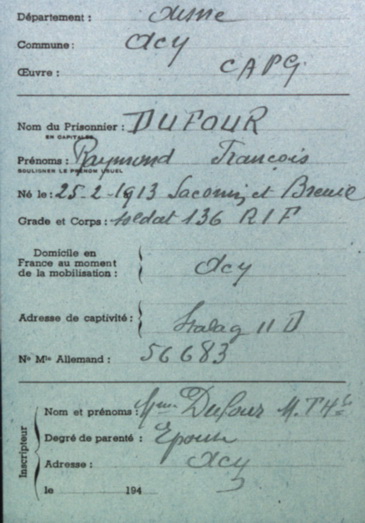 Département : Aisne
Commune : Acy
Œuvre : CAPG
Nom du Prisonnier : DUFOUR
EN CAPITALES
Prénoms : Raymond François
SOULIGNER LE PRÉNOM USUEL
Né le : 25-2-1913 Saconin et Breuil
Grade et Corps : soldat 136 RIF
Domicile en
France au moment
de la mobilisation :
Acy
Adresse de captivité : Stalag II D
Nº Mle Allemand : 56683
Inscripteur
Nom et prénoms : Mme Dufour M. Th
Degré de parenté : Epouse
Adresse : Acy
le 194